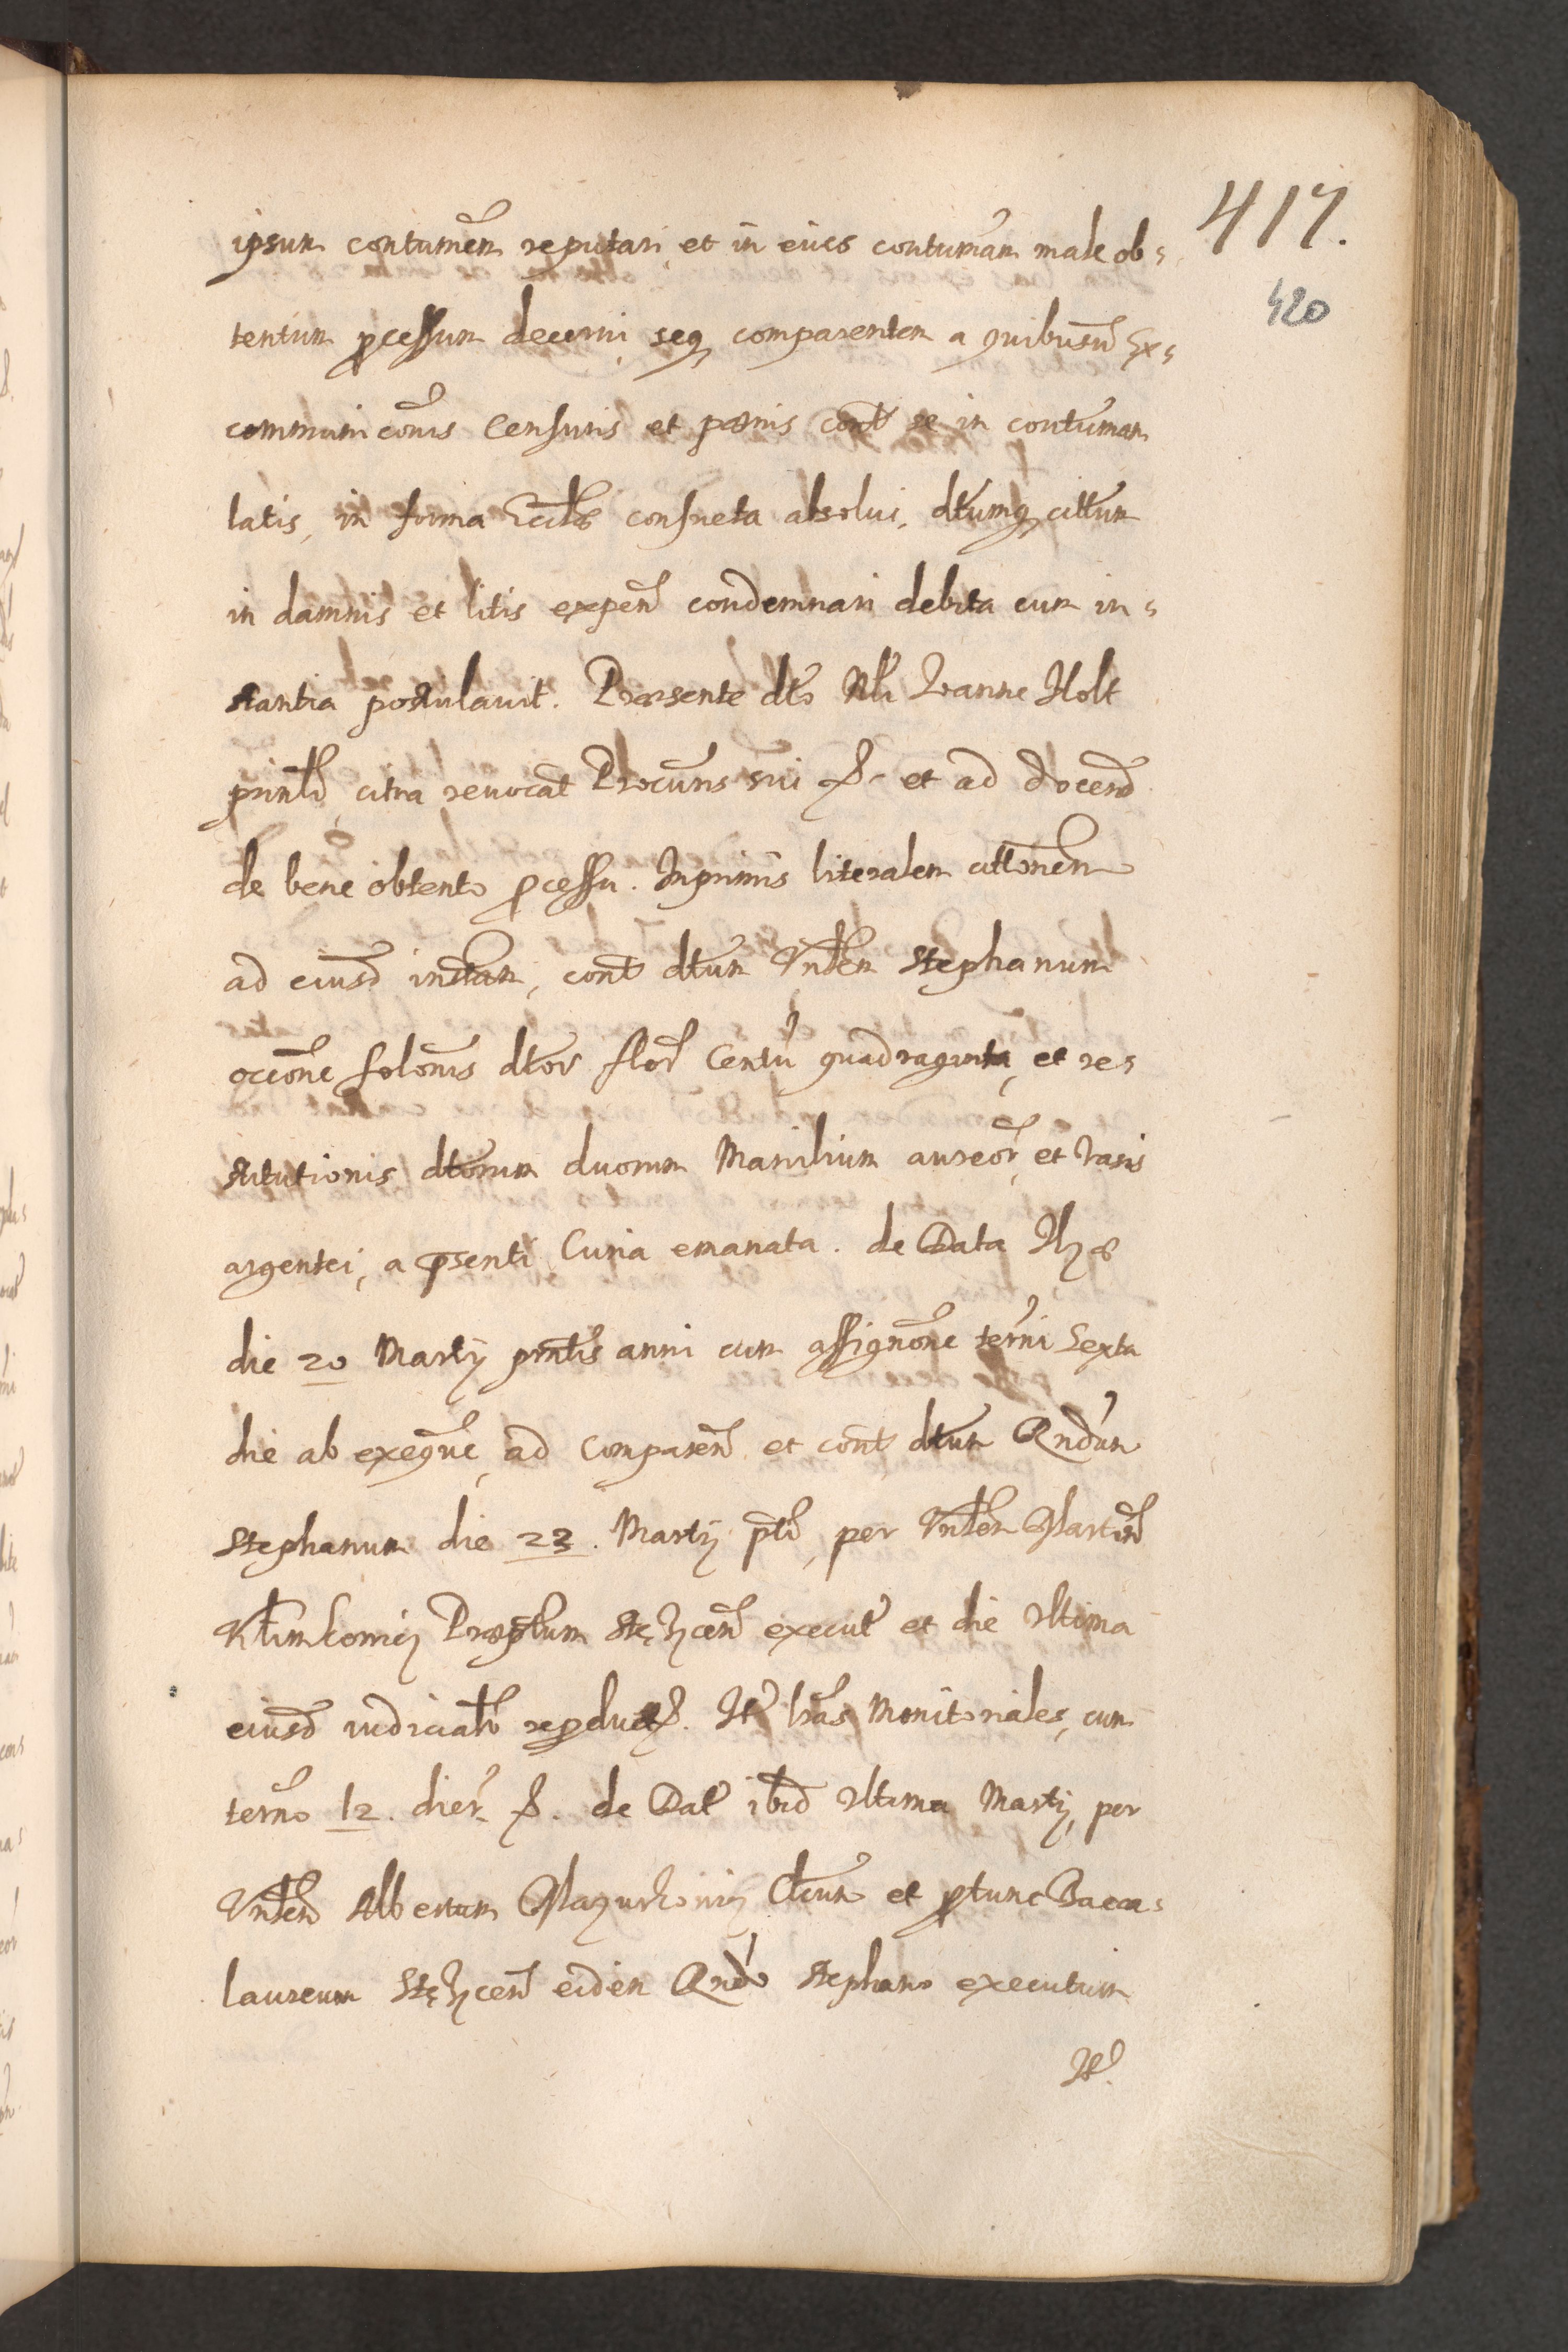 417.
420
ipsum contumēm reputari, et in eius contumām male ob=
tentum pcessum decerni, seq, comparentem a quibusuis Ex=
communicōnis Censuris et pœnis cont se in contumam
latis, in forma Ecclæ consueta absolui, dtumq, cittum
in damnis et litis expens condemnari debita cum in=
stantia postulauit. Præsente dto Nbli Ioanne Holt
prinlī citra reuocat Procuris sui &. et ad docend
de bene obtento pcessu. Inprimis literalem cittonem
ad eiusd instam, cont dtum Vnblem Stephanum
occōne solonis dtor flor Centū quadraginta, et re=
stitutionis dtorum duorum Manilium aureor, et Vasis
argentei, a psenti Curia emanata. de Data
die 20 Martij prntis anni cum assignōne termi Sexta
die ab exeqūe, ad comparend et cont dtum Rndum
Stephanum die 23. Martij pti, per Vnblem Martin
Klimkowicz Præptum executˀ et die Vltima
eiusd iudiciatr repduct. &. It lras Monitoriales, cum
termo 12. dier &. de Dat ibid Vltima Martij, per
Vnblem Albertum Mazurkowicz Cleum et ptunc Bacca=
laureum eidem Rndo Stephano executum
It.